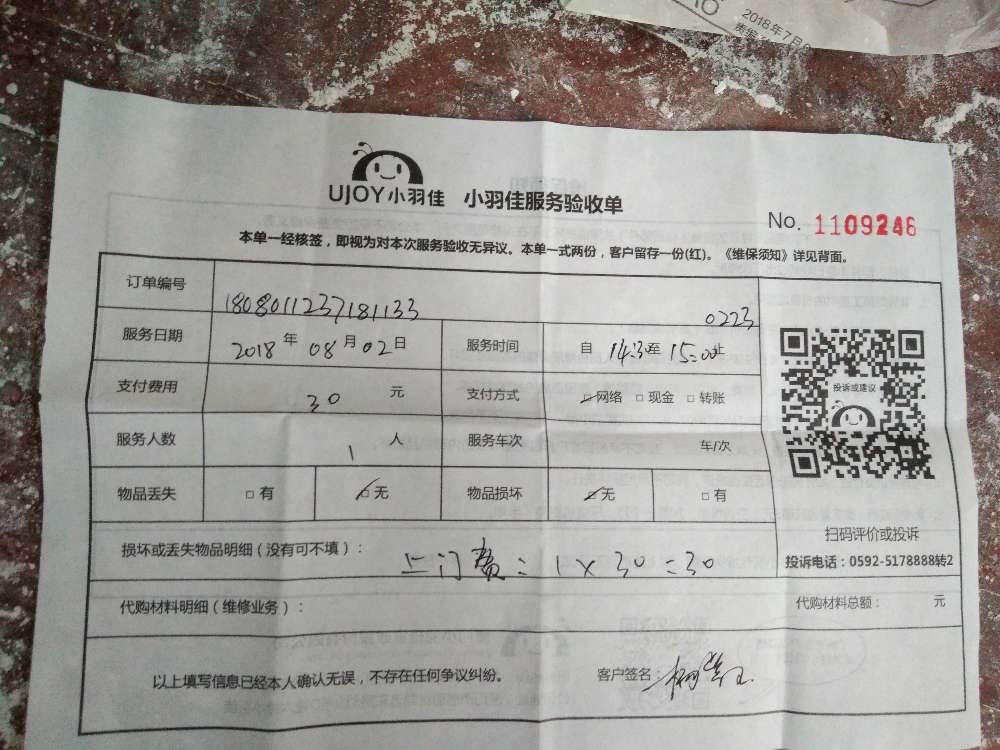 2018年7月
UJOY小羽佳 小羽佳服务验收单
No. 1109246
本单一经核签，即视为对本次服务验收无异议。本单一式两份，客户留存一份(红)。《维保须知》详见背面。
订单编号 1808011237181133 0223
服务日期 2018 年 08 月 02 日 服务时间 自 14:30至 15:00止
支付费用 30 元 支付方式 □网络 □现金 □转账
投诉或建议
服务人数 1 人 服务车次 车/次
物品丢失 □有 □无 物品损坏 □无 □有
扫码评价或投诉
损坏或丢失物品明细（没有可不填）： 上门费：1 x 30 = 30
投诉电话：0592-5178888转2
代购材料明细（维修业务）： 代购材料总额： 元
以上填写信息已经本人确认无误，不存在任何争议纠纷。 客户签名：